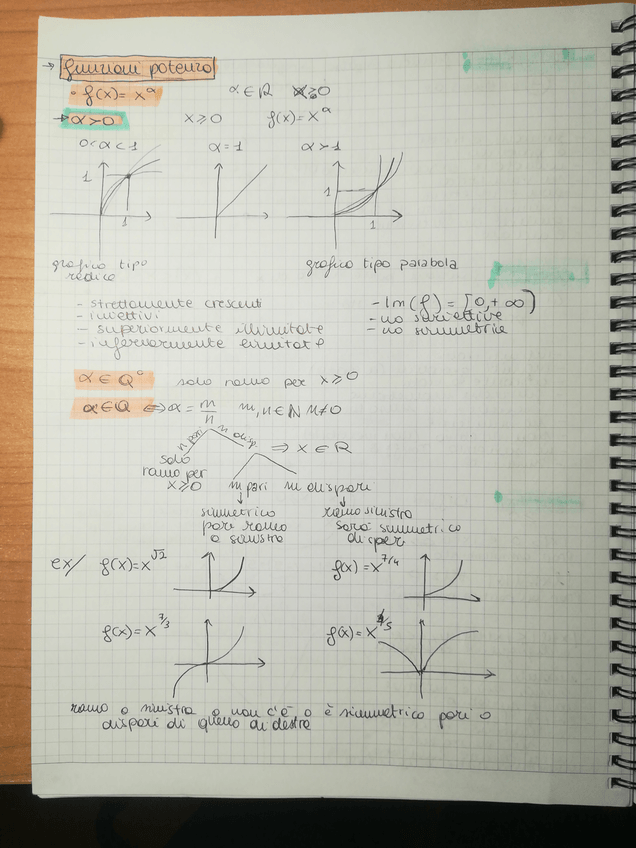 → funzioni potenza
• f(x) = x^α α ∈ R x ≥ 0
→ α > 0 x ≥ 0 f(x) = x^α
0 < α < 1 α = 1 α > 1
1 1
1 1
grafico tipo radice grafico tipo parabola
- strettamente crescenti - Im(f) = [0, +∞)
- iniettivi - no suriettive
- superiormente illimitate - no simmetrie
- inferiormente limitate
α ∈ Q^c solo ramo per x ≥ 0
α ∈ Q ⇔ α = m/n m, n ∈ N n ≠ 0
n pari n disp. ⇒ x ∈ R
solo
ramo per
x ≥ 0 m pari m dispari
↓ ↓
simmetrico ramo sinistro
pari ramo sarà simmetrico
a sinistra dispari
ex/ f(x) = x^√2 f(x) = x^7/4
f(x) = x^7/3 f(x) = x^/5
ramo a sinistra o non c'è o è simmetrico pari o
dispari di quello di destra